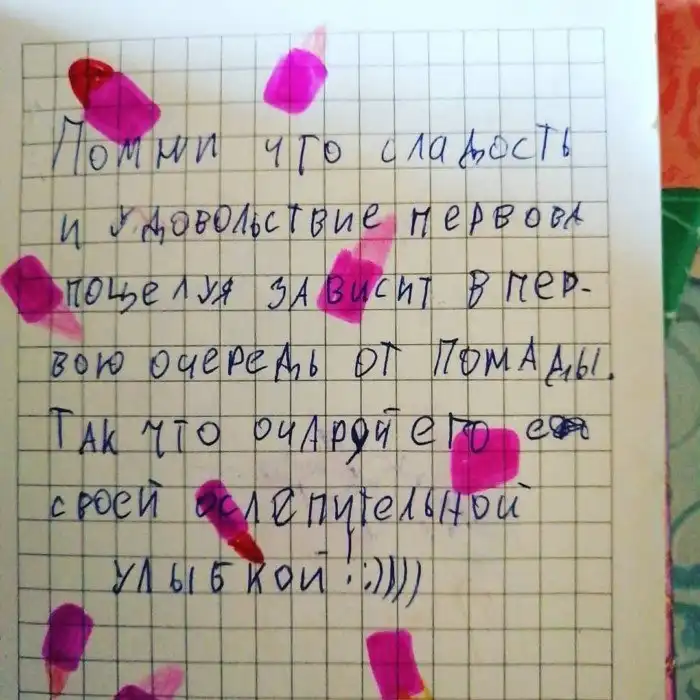 Помни что сладость
и удовольствие первова
поцелуя зависит в пер-
вою очередь от помады.
Так что очаруй его
своей ослепительной
улыбкой!:))))